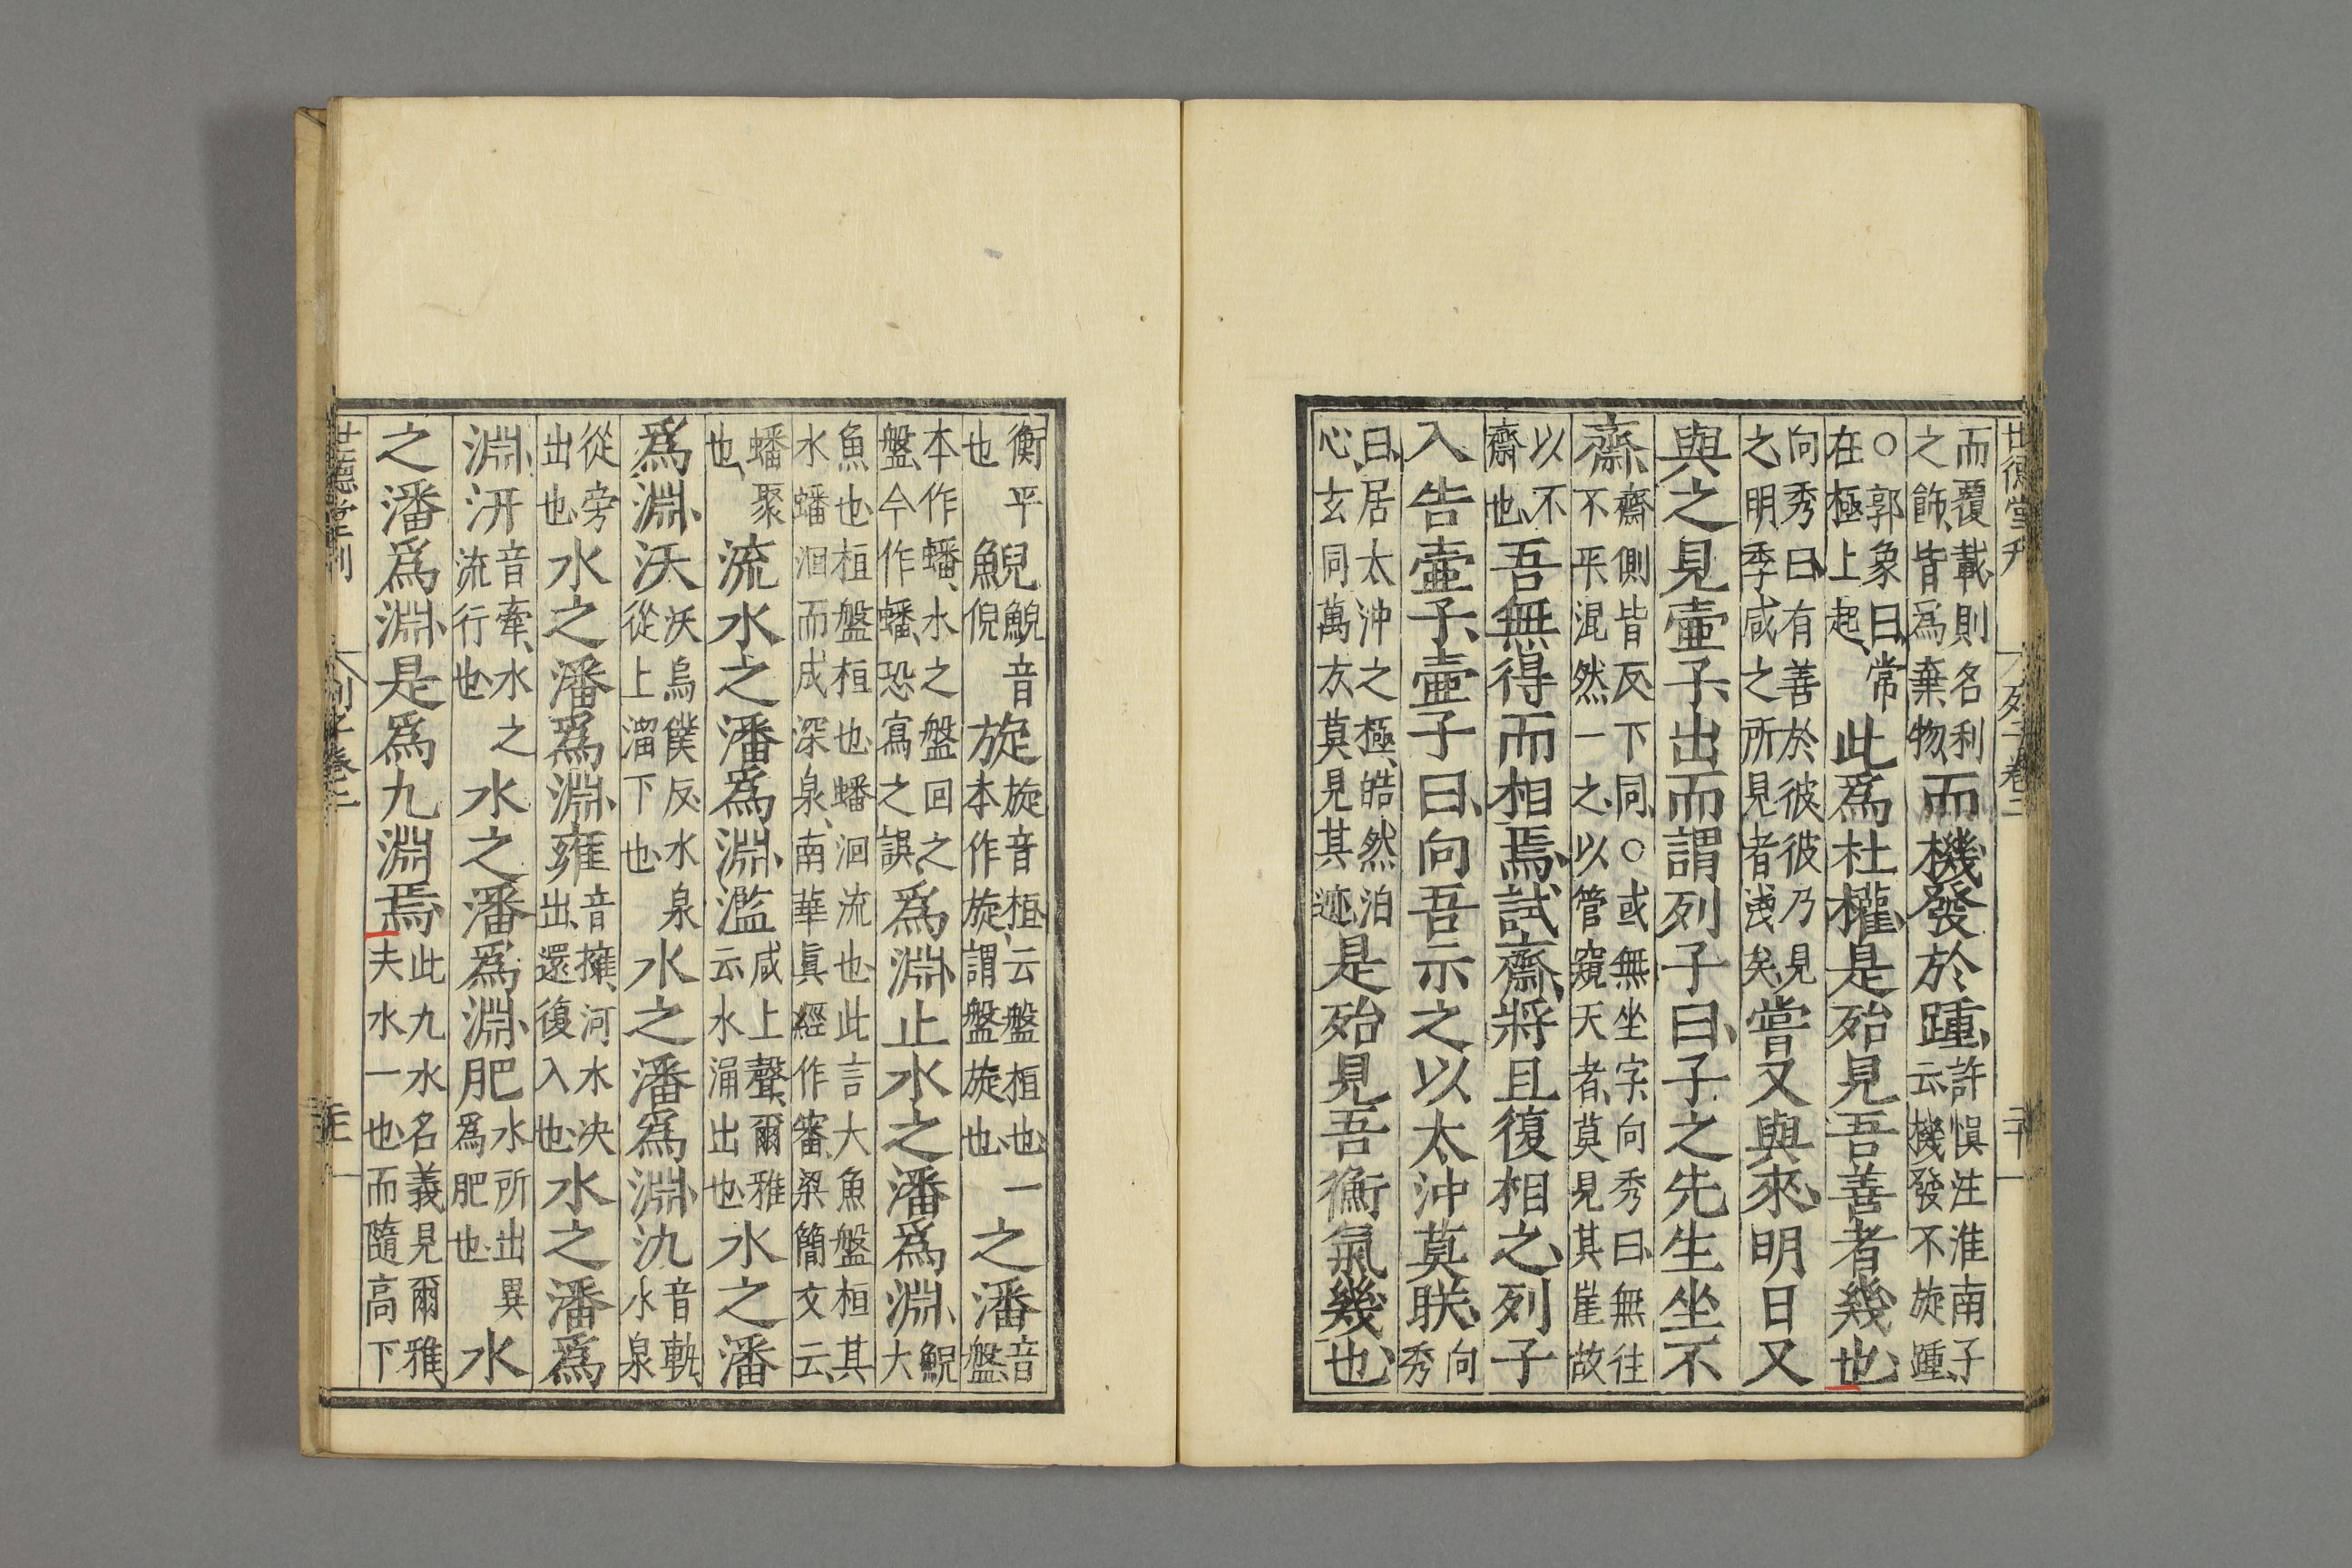 世德堂刊 列子卷二 二十一
而覆載則名利之飾皆爲棄物而機發於踵許慎注淮南子云機發不旋踵
○郭象曰常在極上起此爲杜權是殆見吾善者幾也
向秀曰有善於彼彼乃見之明季咸之所見者淺矣嘗又與來明日又
與之見壷子出而謂列子曰子之先生坐不
齋齋側皆反下同○或無坐字向秀曰無往不平混然一之以管窺天者莫見其崖故
以不齋也吾無得而相焉試齋將且復相之列子
入告壷子壷子曰向吾示之以太沖莫眹向秀
曰居太沖之極皓然泊心玄同萬方莫見其迹是殆見吾衡氣幾也
衡平也鯢鯢音倪旋旋音桓云盤桓也一本作旋謂盤旋也之潘音盤
本作蟠水之盤回之盤今作蟠恐寫之誤爲淵止水之潘爲淵鯢大
魚也桓盤桓也蟠洄流也此言大魚盤桓其水蟠洄而成深泉南華眞經作審梁簡文云
蟠聚也流水之潘爲淵濫咸上聲爾雅云水涌出也水之潘
爲淵沃沃烏僕反水泉從上溜下也水之潘爲淵氿音軌水泉
從旁出也水之潘爲淵雍音擁河水决出還復入也水之潘爲
淵汧音牽水之流行也水之潘爲淵肥水所出異爲肥也水
之潘爲淵是爲九淵焉此九水名義見爾雅夫水一也而隨高下
世德堂刊 列子卷二